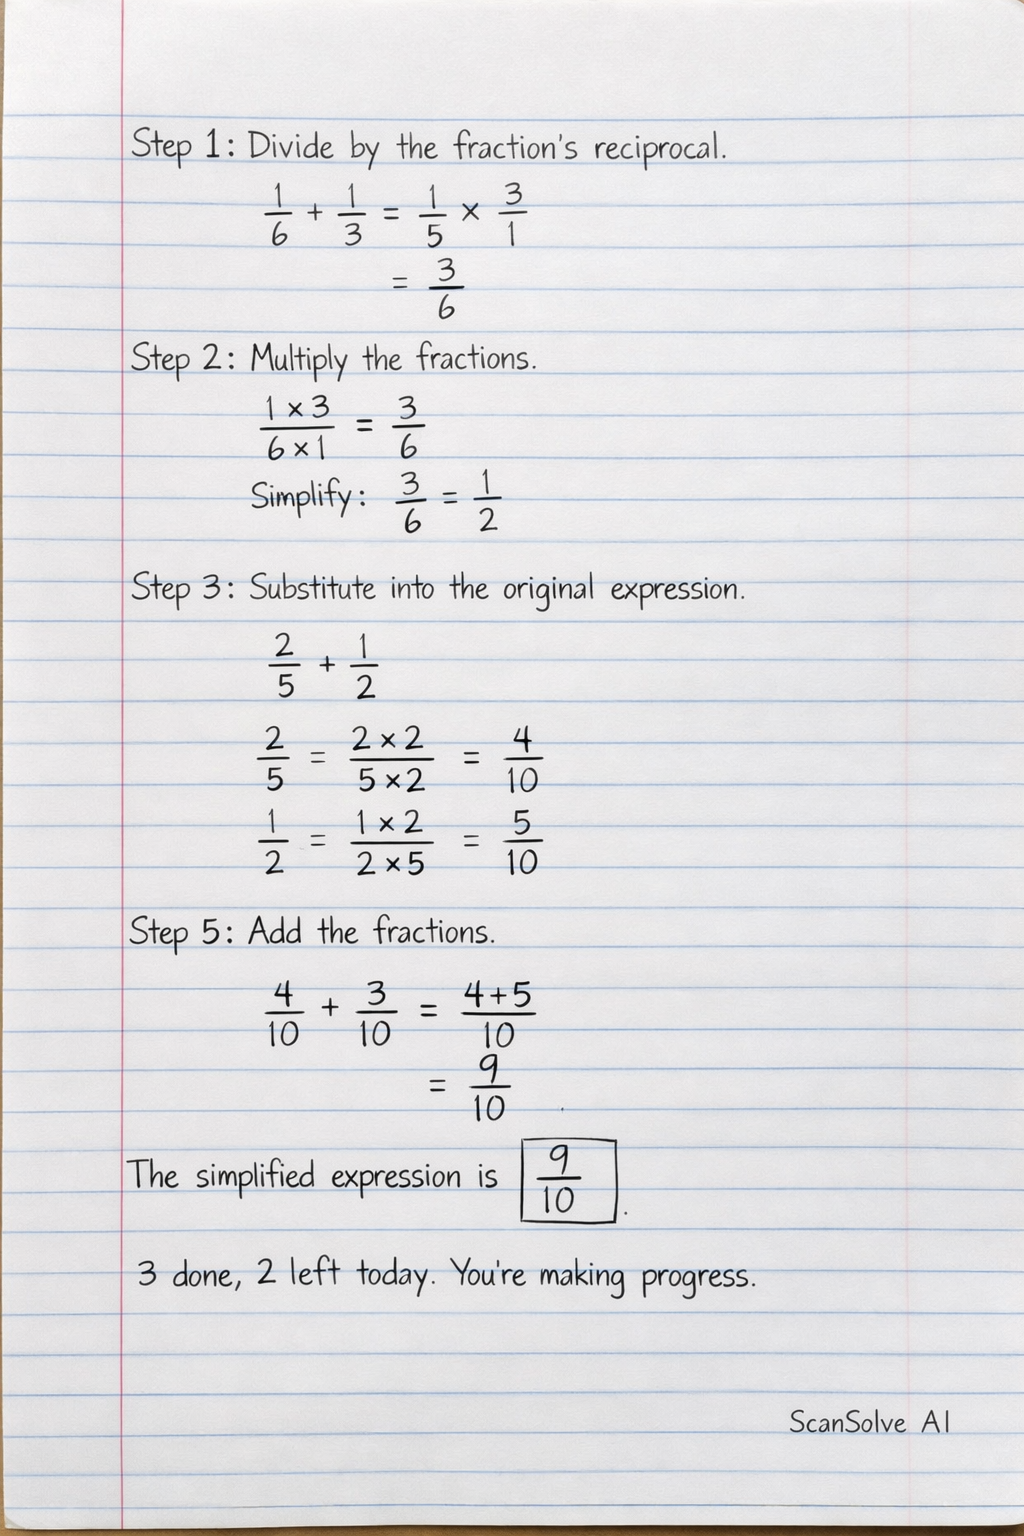 Step 1: Divide by the fraction's reciprocal.
1/6 + 1/3 = 1/5 × 3/1
= 3/6
Step 2: Multiply the fractions.
1 × 3 / 6 × 1 = 3/6
Simplify: 3/6 = 1/2
Step 3: Substitute into the original expression.
2/5 + 1/2
2/5 = 2 × 2 / 5 × 2 = 4/10
1/2 = 1 × 2 / 2 × 5 = 5/10
Step 5: Add the fractions.
4/10 + 3/10 = 4+5 / 10
= 9/10
The simplified expression is 9/10.
3 done, 2 left today. You're making progress.
ScanSolve AI